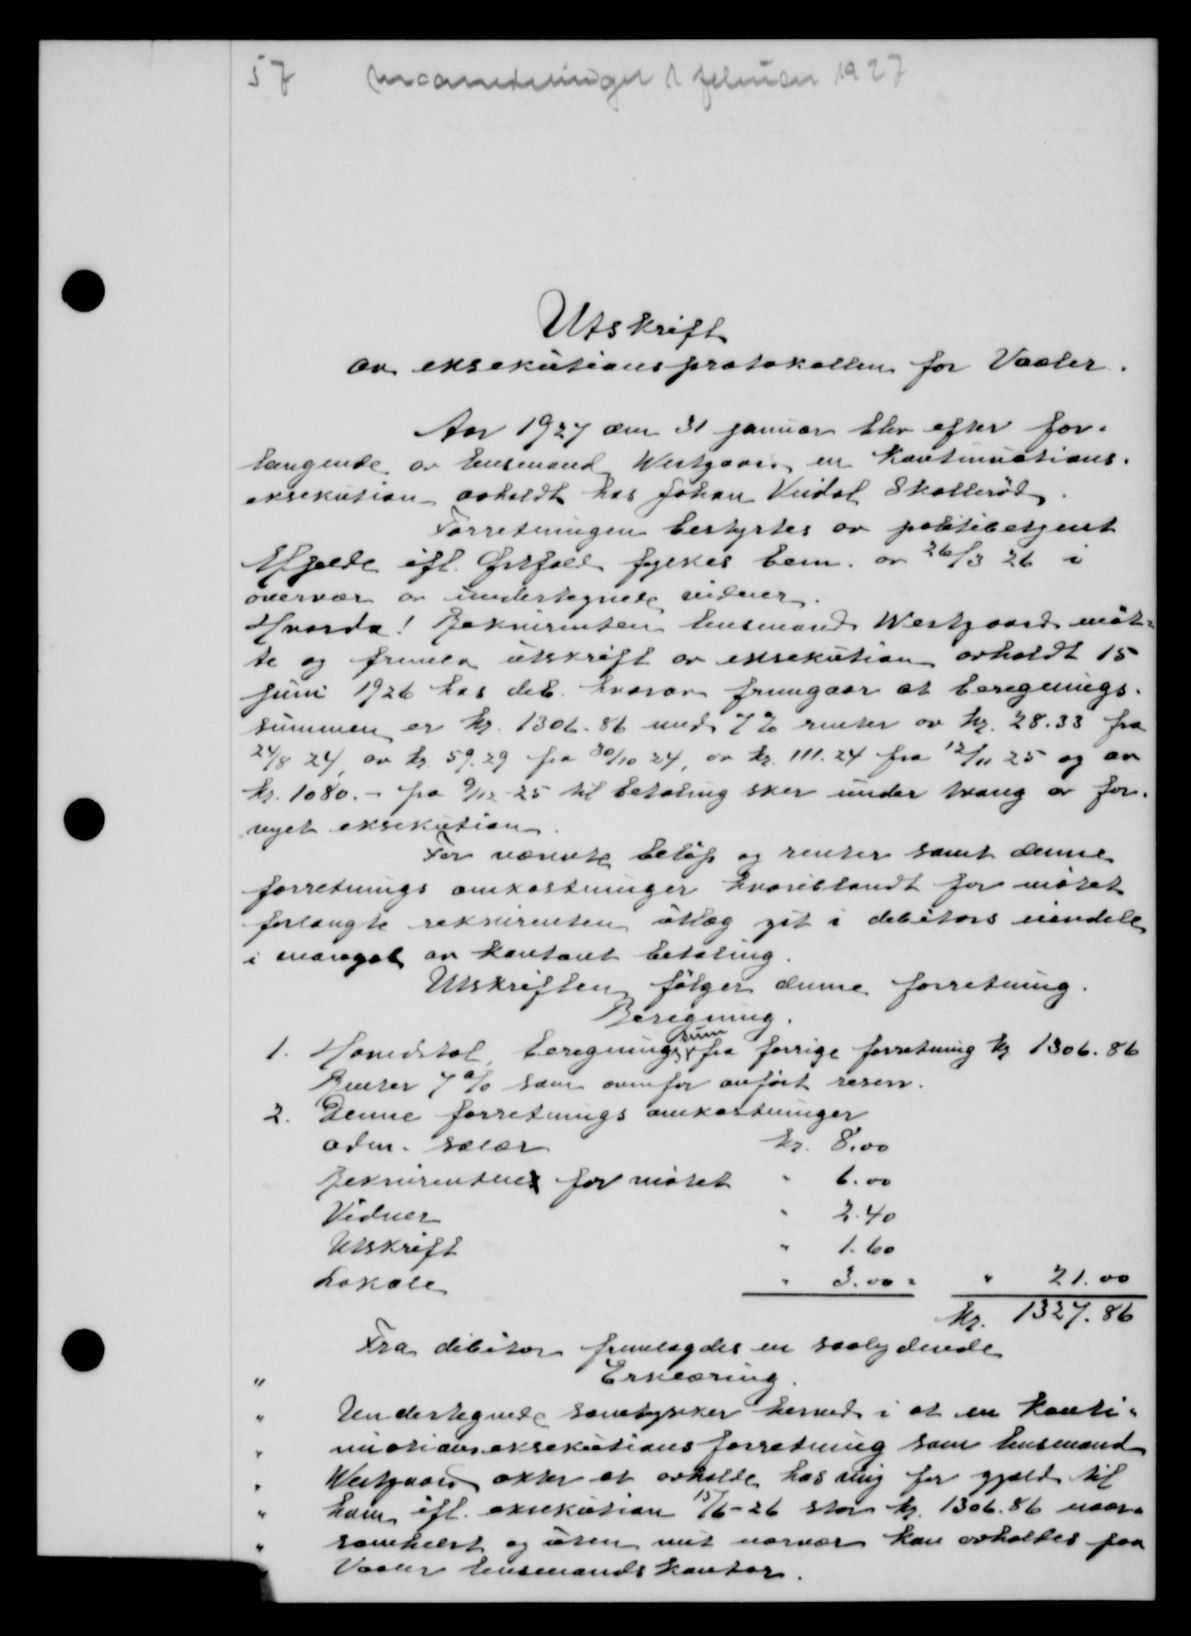 57 1 februar 1927
Utskrift
av eksekutionsprotokollen for Vaaler.
Aar 1927 den 31 januar blev efter for-
langende av lensmand Westgaard en kontinuations-
eksekution avholdt hos Johan Vidal Skallerød.
Forretningen bestyrtes av politibetjent
Hjelde ifl. Østfold fylkes bem. av 26/3 26 i
overvær av undertegnede vidner.
Hvorda! Rekvirenten lensmand Westgaard møt-
te og fremla utskrift av eksekution avholdt 15
juni 1926 hos deb. hvorav fremgaar at beregnings-
summen er kr. 1306.86 med 7% renter av kr. 28.33 fra
24/8 24, av kr. 59.29 fra 30/10 24, av kr. 111.24 fra 12/11 25 og av
kr. 1080.- fra 9/12-25 til betaling sker under tvang av for-
nyet eksekution.
For nævnte beløp og renter samt denne
forretnings omkostninger hvoriblandt for møtet
forlangte rekvirenten utlæg git i debitors eiendele
i mangel av kontant betaling.
Utskriften følger denne forretning.
Beregning.
1. Hovedstol, beregningssum fra forrige forretning kr 1306.86
Renter 7% som ovenfor anført reserv.
2. Denne forretnings omkostninger
adm. salær kr. 8.00
Rekvirenten for møtet " 6.00
Vidner " 2.40
Utskrift " 1.60
Lokale " 3.00 = " 21.00
kr. 1327.86
Fra debitor fremlagdes en saalydende
" Erklæring.
" Undertegnede samtykker herved i at en konti-
" nuationseksekutionsforretning som lensmand
" Westgaard akter at avholde hos mig for gjæld til
" ham ifl. eksekution 15/6-26 stor kr. 1306.86 naar-
" somhelst og uten mit nærvær kan avholdes paa
Vaaler lensmandskontor.